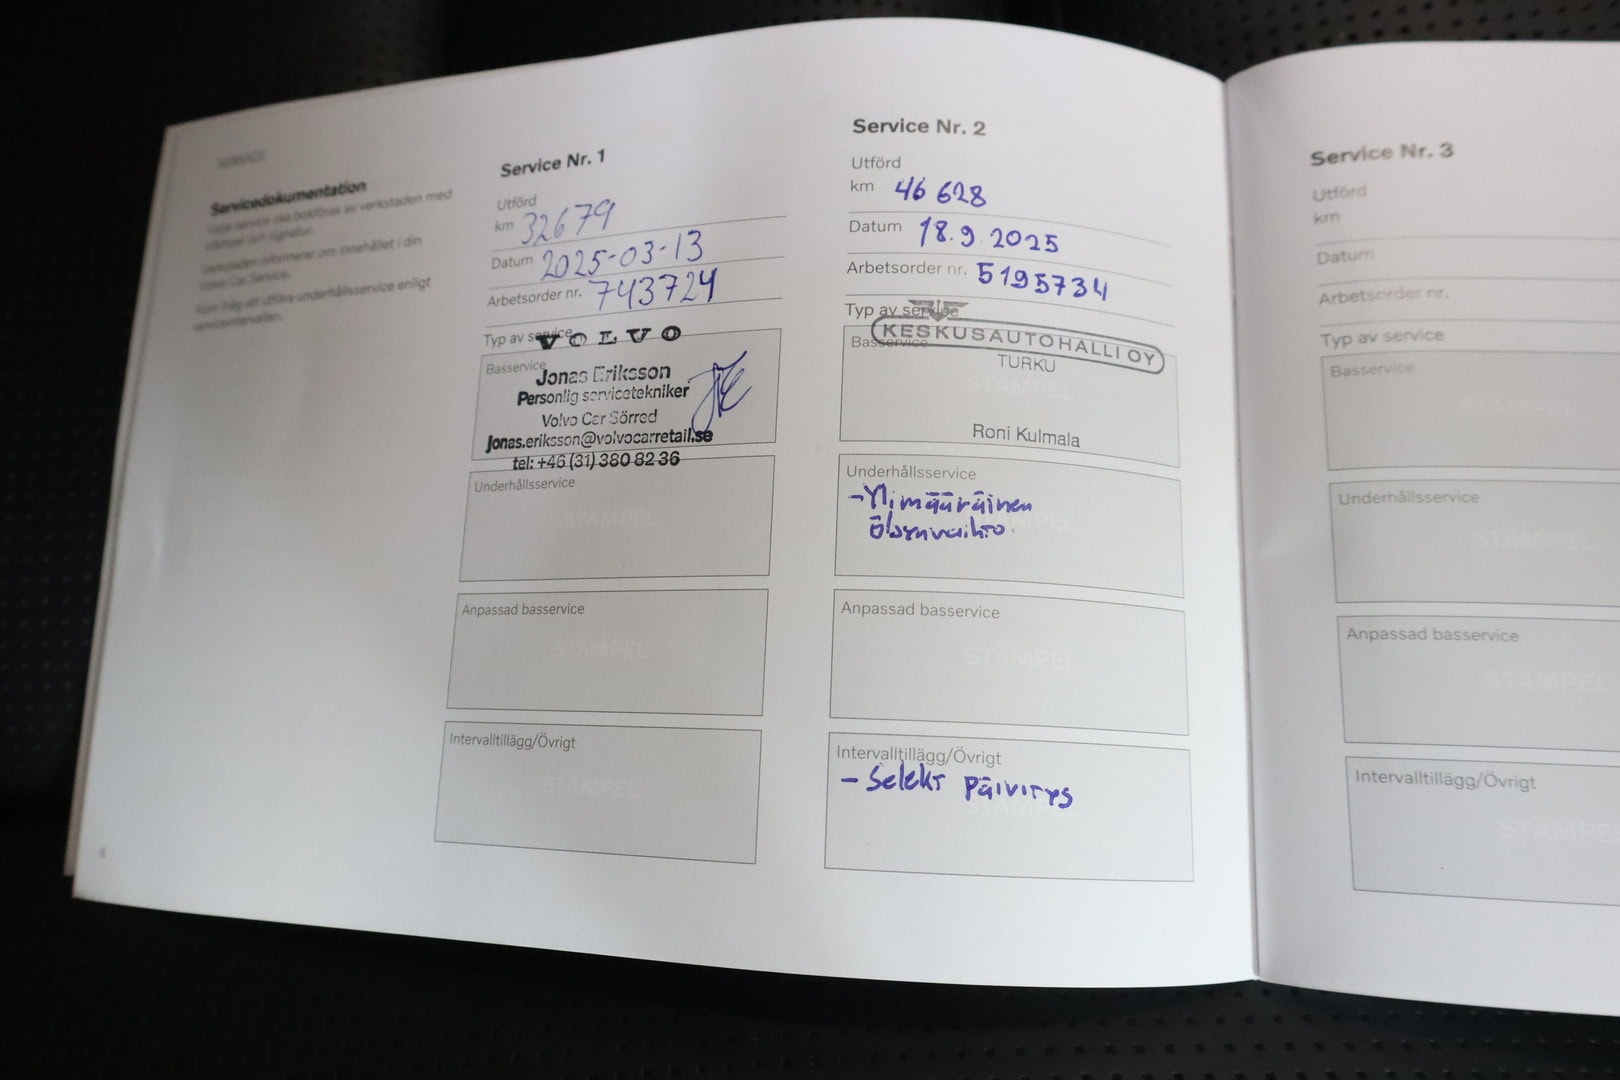 SERVICE
Servicedokumentation
Varje service ska bokföras av verkstaden med
stämpel och signatur.
Verkstaden informerar om innehållet i din
Volvo Car Service.
Kom ihåg att utföra underhållsservice enligt
serviceintervallen.
6
Service Nr. 1
Utförd
km 32679
Datum 2025-03-13
Arbetsorder nr. 743724
Typ av service
VOLVO
Basservice
Jonas Eriksson
Personlig servicetekniker
Volvo Car Sörred
Jonas.eriksson@volvocarretail.se
tel: +46 (31) 380 82 36
Underhållsservice
STÄMPEL
Anpassad basservice
STÄMPEL
Intervalltillägg/Övrigt
STÄMPEL
Service Nr. 2
Utförd
km 46 628
Datum 18.9.2025
Arbetsorder nr. 5195734
Typ av service
KESKUSAUTOHALLI OY
Basservice
TURKU
STÄMPEL
Roni Kulmala
Underhållsservice
-Ylimääräinen
öljynvaihto.
STÄMPEL
Anpassad basservice
STÄMPEL
Intervalltillägg/Övrigt
- Selekt päivitys
STÄMPEL
Service Nr. 3
Utförd
km
Datum
Arbetsorder nr.
Typ av service
Basservice
STÄMPEL
Underhållsservice
STÄMPEL
Anpassad basservice
STÄMPEL
Intervalltillägg/Övrigt
STÄMPEL